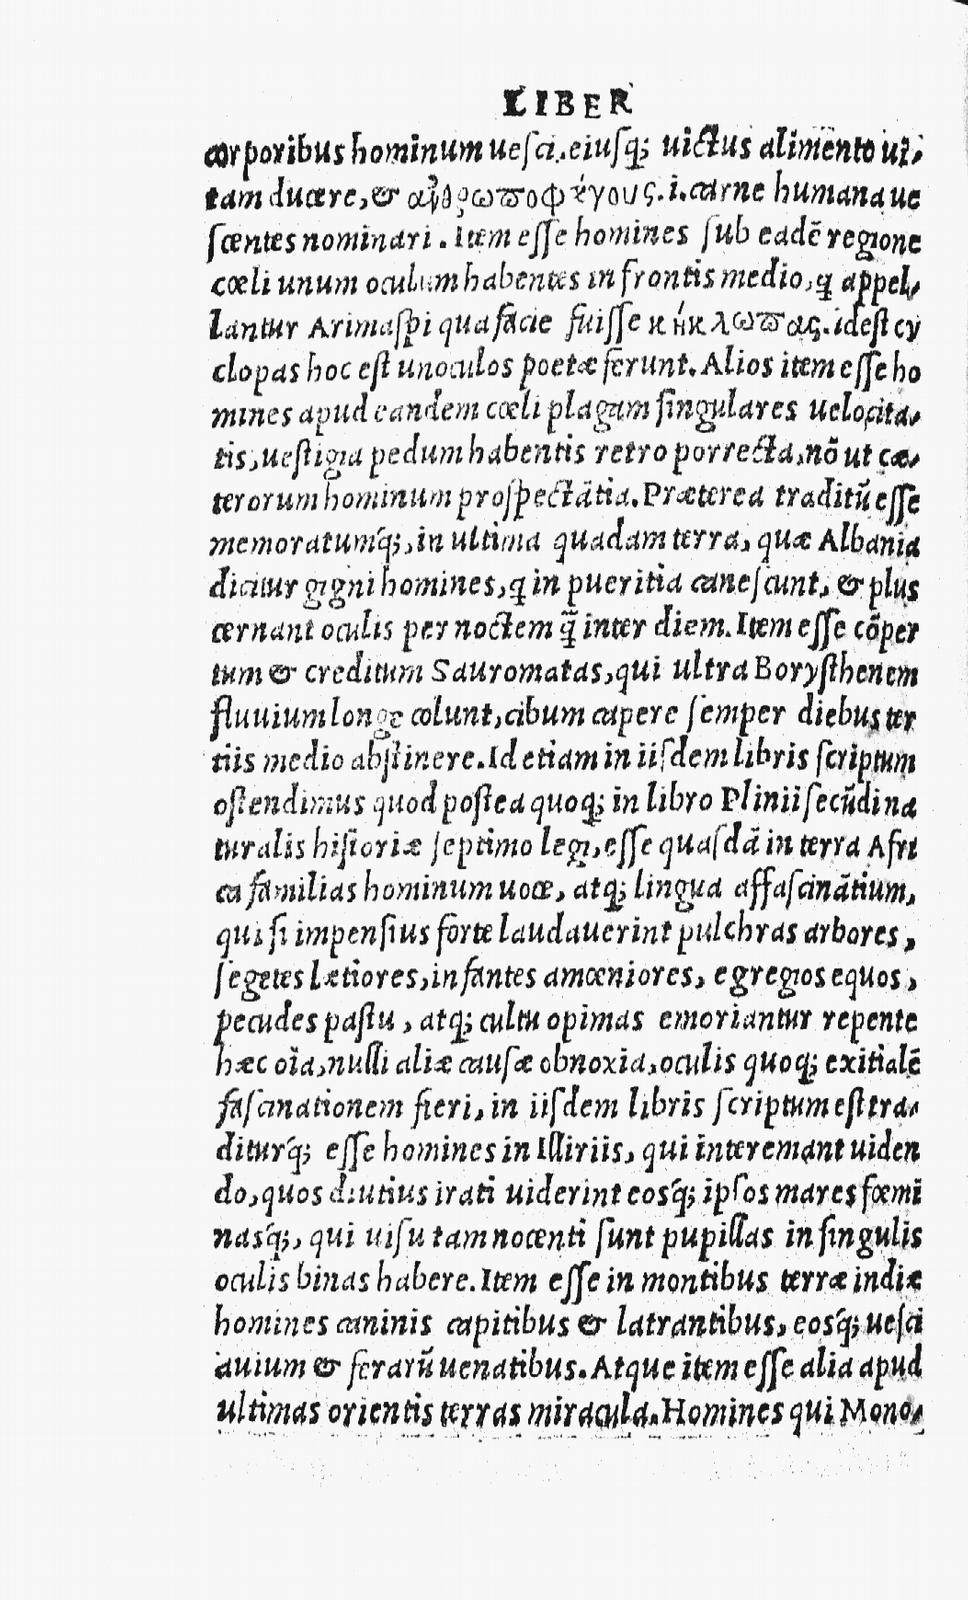 LIBER
corporibus hominum uesci.eiusq; uictus alimento ui-
tam ducere,& ἀνθρωποφάγους.i.carne humana ue
scentes nominari. Item esse homines sub eadē regione
cœli unum oculum habentes in frontis medio,q appel-
lantur Arimaspi qua facie fuisse κήκλωπας.idest cy
clopas hoc est unoculos poetæ ferunt. Alios item esse ho
mines apud eandem cœli plagam singulares uelocita-
tis,uestigia pedum habentis retro porrecta,nō ut cæ-
terorum hominum prospectātia. Præterea traditū esse
memoratumq́;,in ultima quadam terra, quæ Albania
dicitur gigni homines,q in pueritia canescunt, & plus
cernant oculis per noctem q̃ inter diem. Item esse cōper
tum & creditum Sauromatas,qui ultra Borysthenem
fluuium longe colunt,cibum capere semper diebus ter
tiis medio abstinere. Id etiam in iisdem libris scriptum
ostendimus quod postea quoq; in libro Plinii secūdi na
turalis historiæ septimo legi,esse quasdā in terra Afri
ca familias hominum uoce, atq; lingua affascinātium,
qui si impensius forte laudauerint pulchras arbores,
segetes lætiores,infantes amœniores, egregios equos,
pecudes pastu, atq; cultu opimas emoriantur repente
hæc oīa,nulli aliæ causæ obnoxia,oculis quoq; exitialē
fascinationem fieri, in iisdem libris scriptum est tra-
diturq́; esse homines in Illiriis, qui interemant uiden
do,quos diutius irati uiderint eosq́; ipsos mares fœmi
nasq́;, qui uisu tam nocenti sunt pupillas in singulis
oculis binas habere. Item esse in montibus terræ indiæ
homines caninis capitibus & latrantibus, eosq́; uesci
auium & ferarū uenatibus. Atque item esse alia apud
ultimas orientis terras miracula. Homines qui Mono-